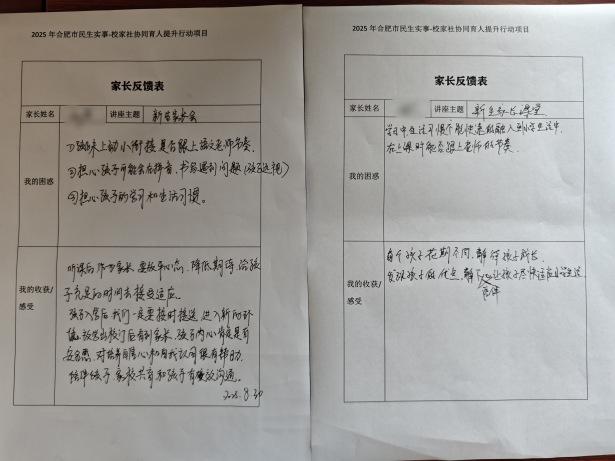 2025年合肥市民生实事-校家社协同育人提升行动项目
家长反馈表
家长姓名
讲座主题
新生家长会
我的困惑
①孩子未上幼小衔接是否跟上语文老师节奏。
②担心孩子可能会有拼音、书写遇到问题
③担心孩子的学习和生活习惯。
我的收获/
感受
听课后作为家长要放平心态,降低期待,给孩
子充足的时间去接受适应。
孩子入学后我们一定要按时接送,进入新的环
境,放学出校门后看到家长,孩子内心肯定是有
安全感,对培养自信心和自我认同很有帮助。
陪伴孩子,家校共育和孩子有效沟通。
2025.8.30
2025年合肥市民生实事-校家社协同育人提升行动项目
家长反馈表
家长姓名
讲座主题
新生家长课堂
我的困惑
学习中生活习惯不能快速融入到小学生活中,
在上课时能否跟上老师的节奏。
我的收获/
感受
每个孩子花期不同,静待孩子成长,
发现孩子的优点,让孩子尽快适应小学生活
陪伴